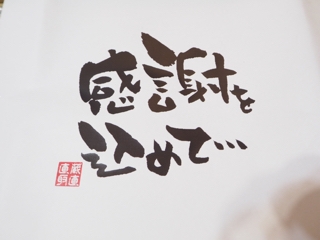 感謝を
込めで…